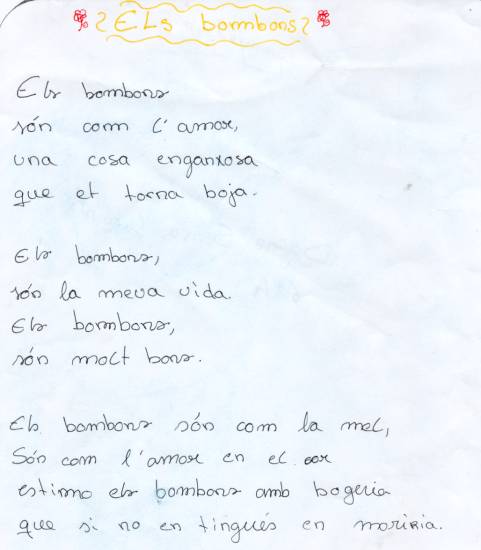 ELs bombons
Els bombons
són com l'amor,
una cosa enganxosa
que et torna boja.
Els bombons,
són la meva vida.
Els bombons,
són molt bons.
Els bombons són com la mel,
Són com l'amor en el cor
estimo els bombons amb bogeria
que si no en tingués en moriria.